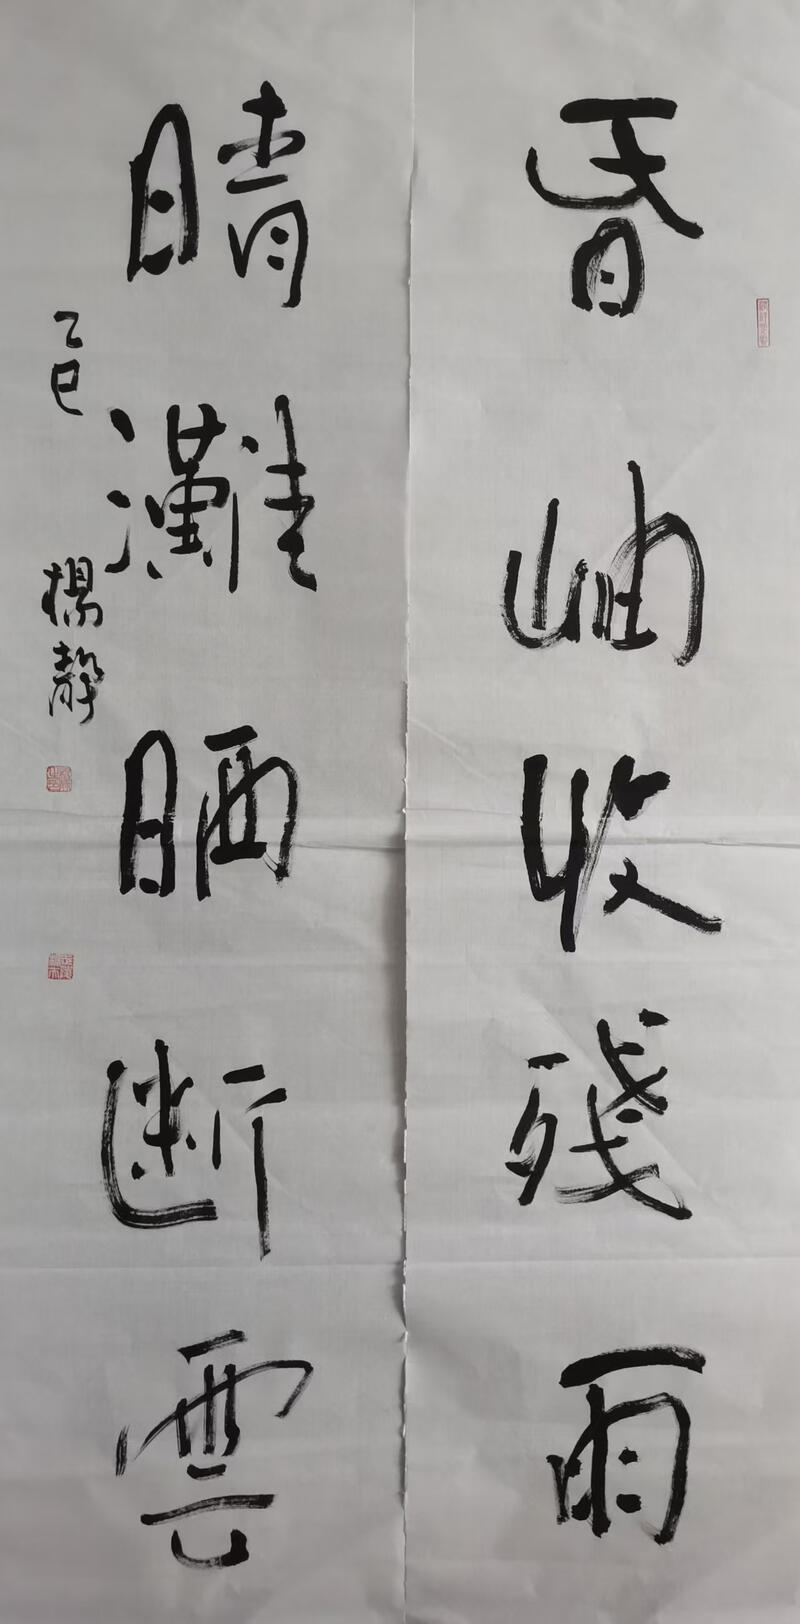 昏岫收殘雨
晴灘晒断雲
乙巳 楊靜